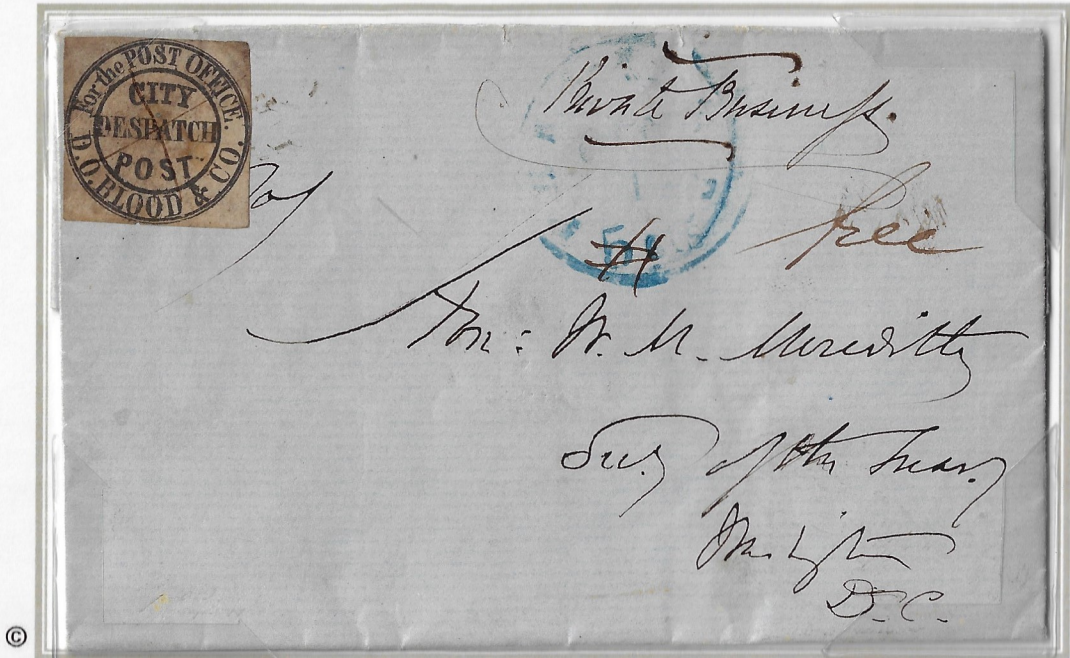 For the POST OFFICE.
CITY
DESPATCH
POST
D.O. BLOOD & CO.
Private Business.
Free
Hon: W. M. Meredith
Secy of the Treasy
Washington
D.C.
©